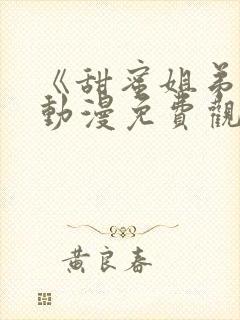 《甜蜜姐弟
動漫免費觀
黄良春